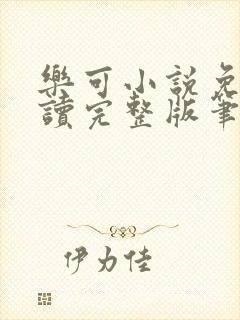 樂可小説免
讀完整版筆
伊力佳